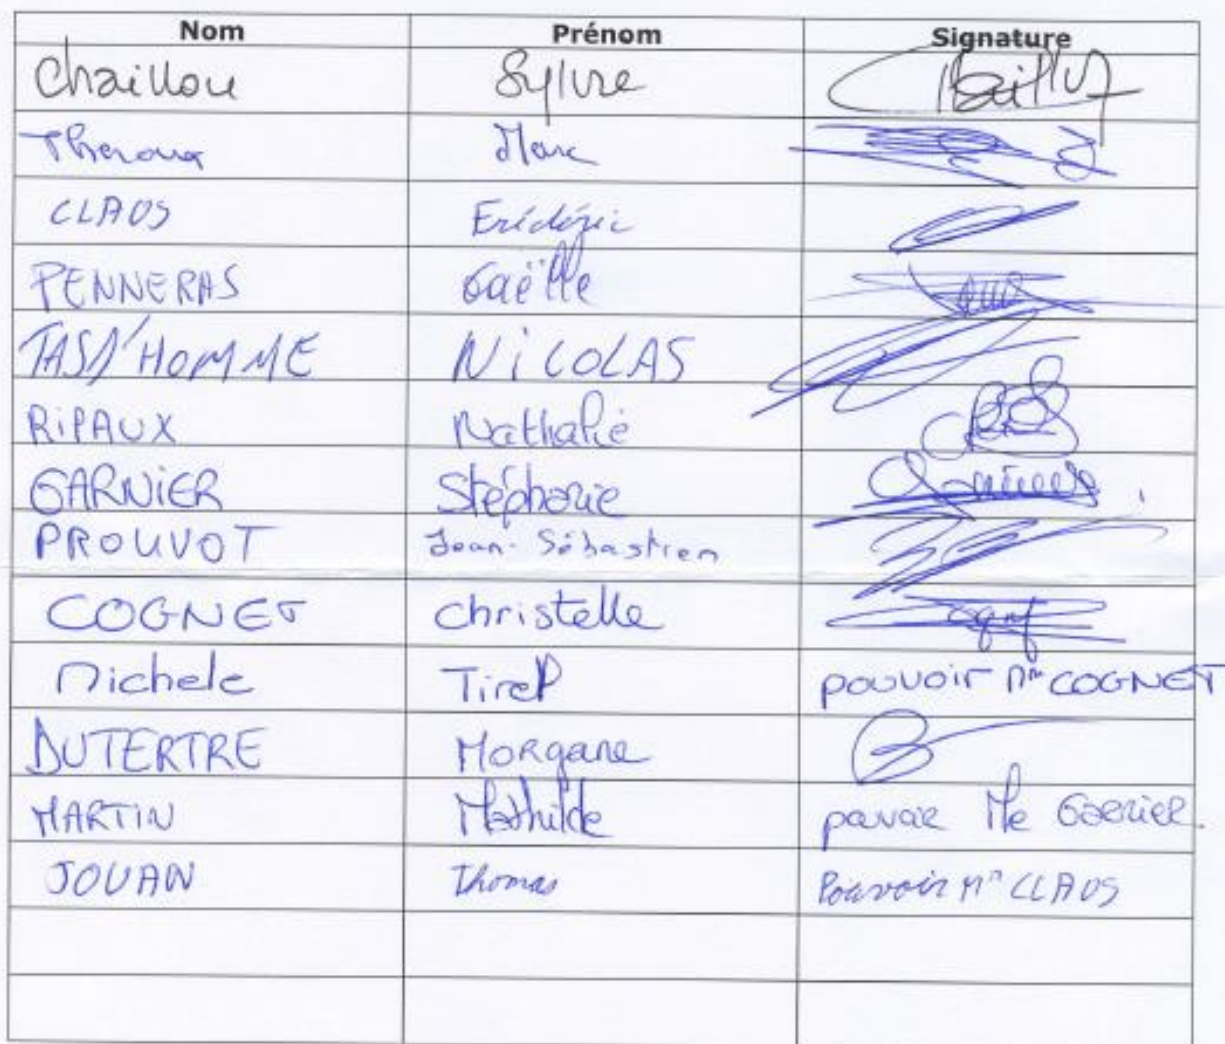 Nom Prénom Signature
Chaillou Sylvie Chaillou
Theroux Marc
CLAUS Frédéric
PENNERAS Gaëlle
TASD'HOMME NiCOLAS
RiPAUX Nathalie
GARNiER Stéphanie Garnier
PROUVOT Jean-Sébastien
COGNET Christelle
Michele Tirel pouvoir Me COGNET
DUTERTRE Morgane
MARTIN Mathilde Me Garnier
JOUAN Thomas Pouvoir Mr CLAUS